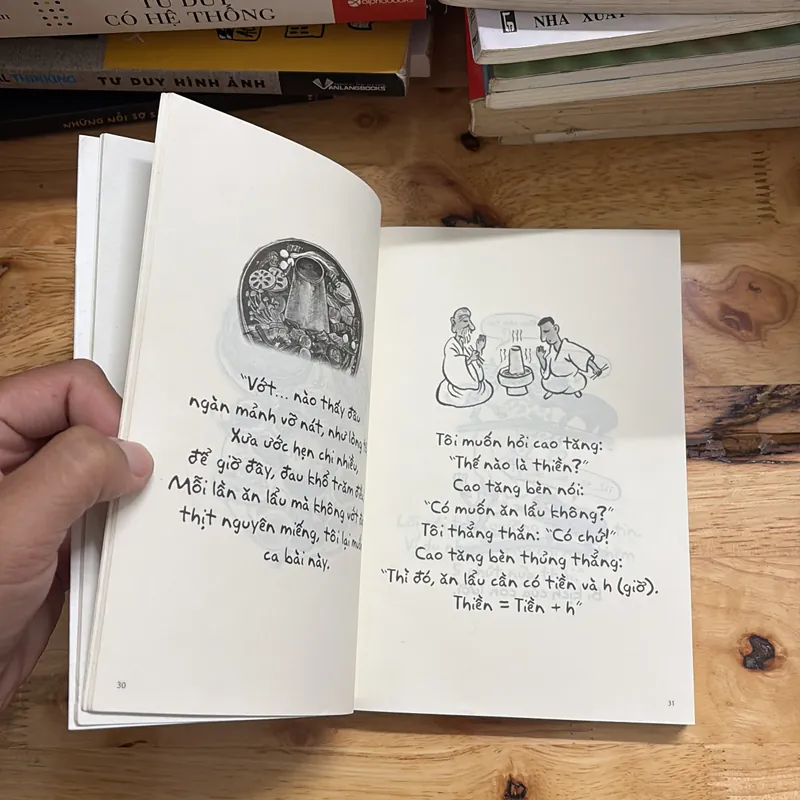 TƯ DUY
CÓ HỆ THỐNG
alphabooks
THINKING
TƯ DUY HÌNH ẢNH
VANLANGBOOKS
NHỮNG NỖI SỢ
NHÀ XUẤT
"Vớt... nào thấy đâu
ngàn mảnh vỡ nát, như lòng
Xưa ước hẹn chi nhiều,
để giờ đây, đau khổ trăm
Mỗi lần ăn lẩu mà không vớt
thịt nguyên miếng, tôi lại
ca bài này.
30
Tôi muốn hỏi cao tăng:
"Thế nào là thiền?"
Cao tăng bèn nói:
"Có muốn ăn lẩu không?"
Tôi thẳng thắn: "Có chứ!"
Cao tăng bèn thủng thẳng:
"Thì đó, ăn lẩu cần có tiền và h (giờ).
Thiền = Tiền + h"
31